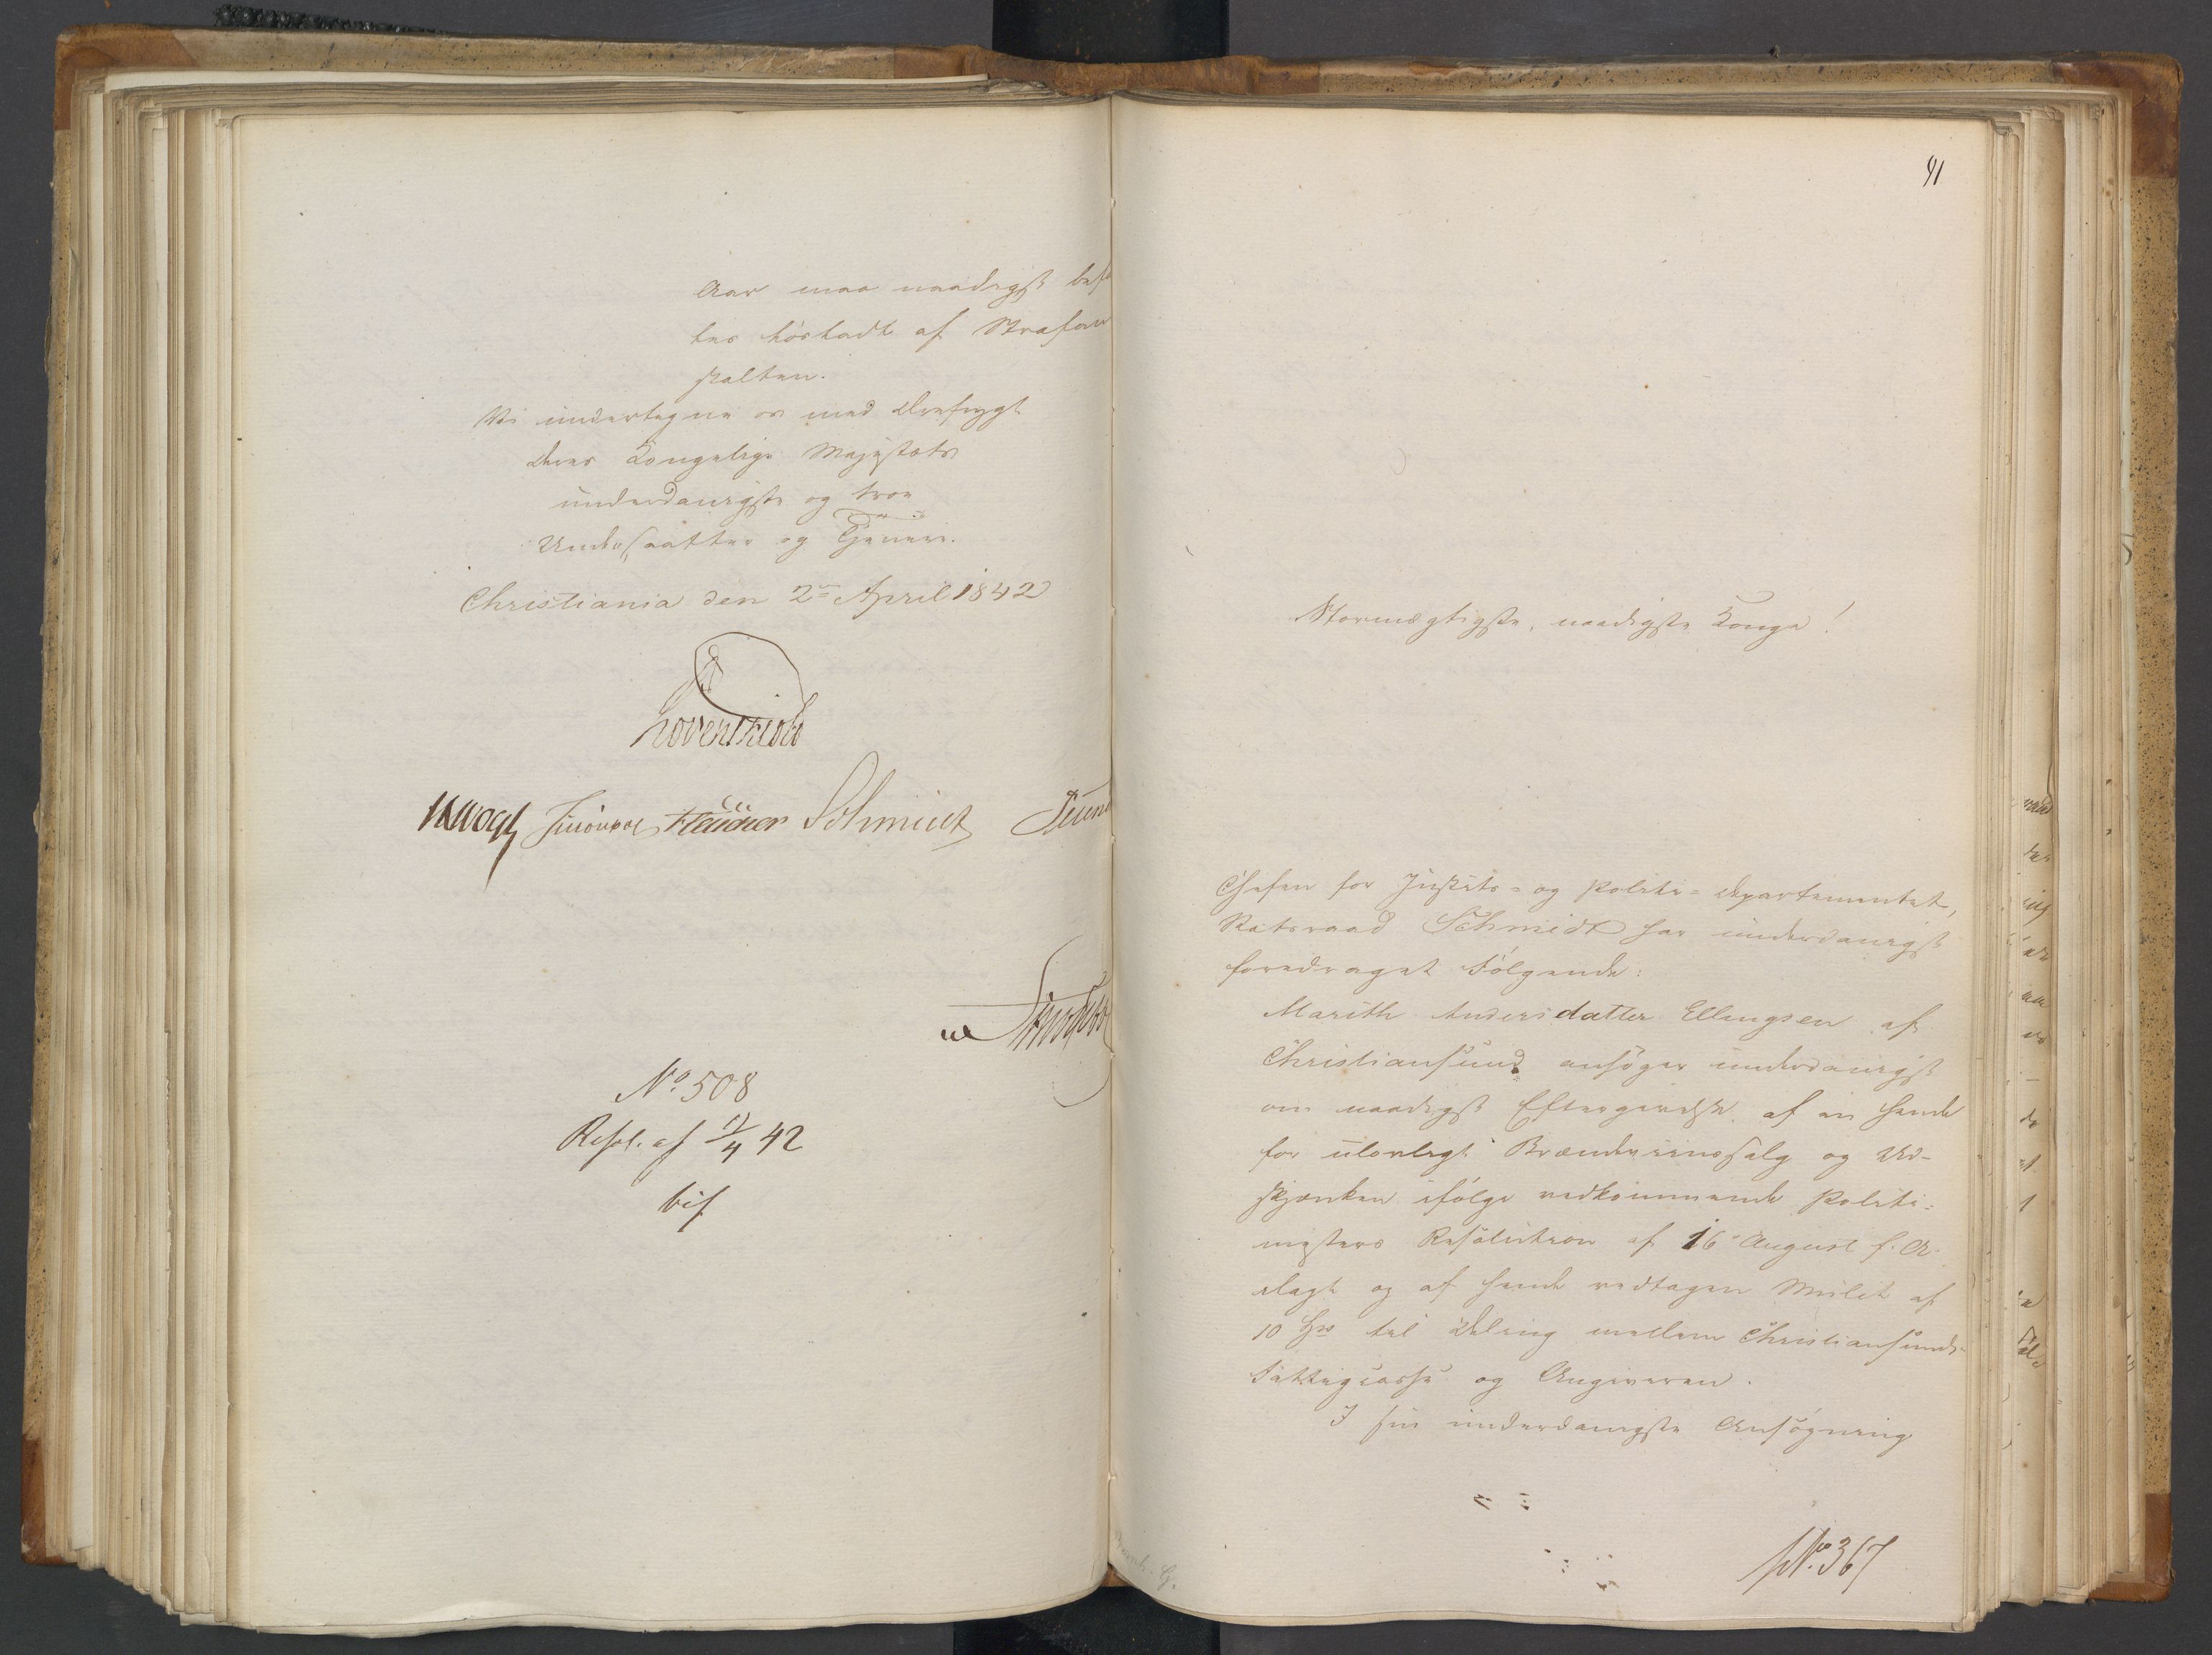 Aar maa naadigst
tes løsladt af Strafan
stalten.
Vi undertegne os med Ærefrygt
Deres Kongelige Majestæts
underdanigste og troe
Undersaatter og Tjenere.
Christiania den 2den April 1842
Løvenskiold
Vogt Schmidt
No. 508
Resol. af 11/4 42
bif
91
Stormægtigste, naadigste Konge!
Chefen for Justits- og Politi-Departementet,
Statsraad Schmidt har underdanigst
foredraget Følgende:
Marith Andersdatter Ellingsen af
Christiansund ansøger underdanigst
om naadigst Eftergivelse af en hende
for ulovligt Brændeviinssalg og Ud-
skjænken ifølge vedkommende Politi-
mesters Resolution af 16 August f. A.
ilagt og af hende vedtagen Mulct af
10 Spd til Deling mellem Christiansunds
Fattigcasse og Angiveren.
I sin underdanigste Ansøgning
No. 367